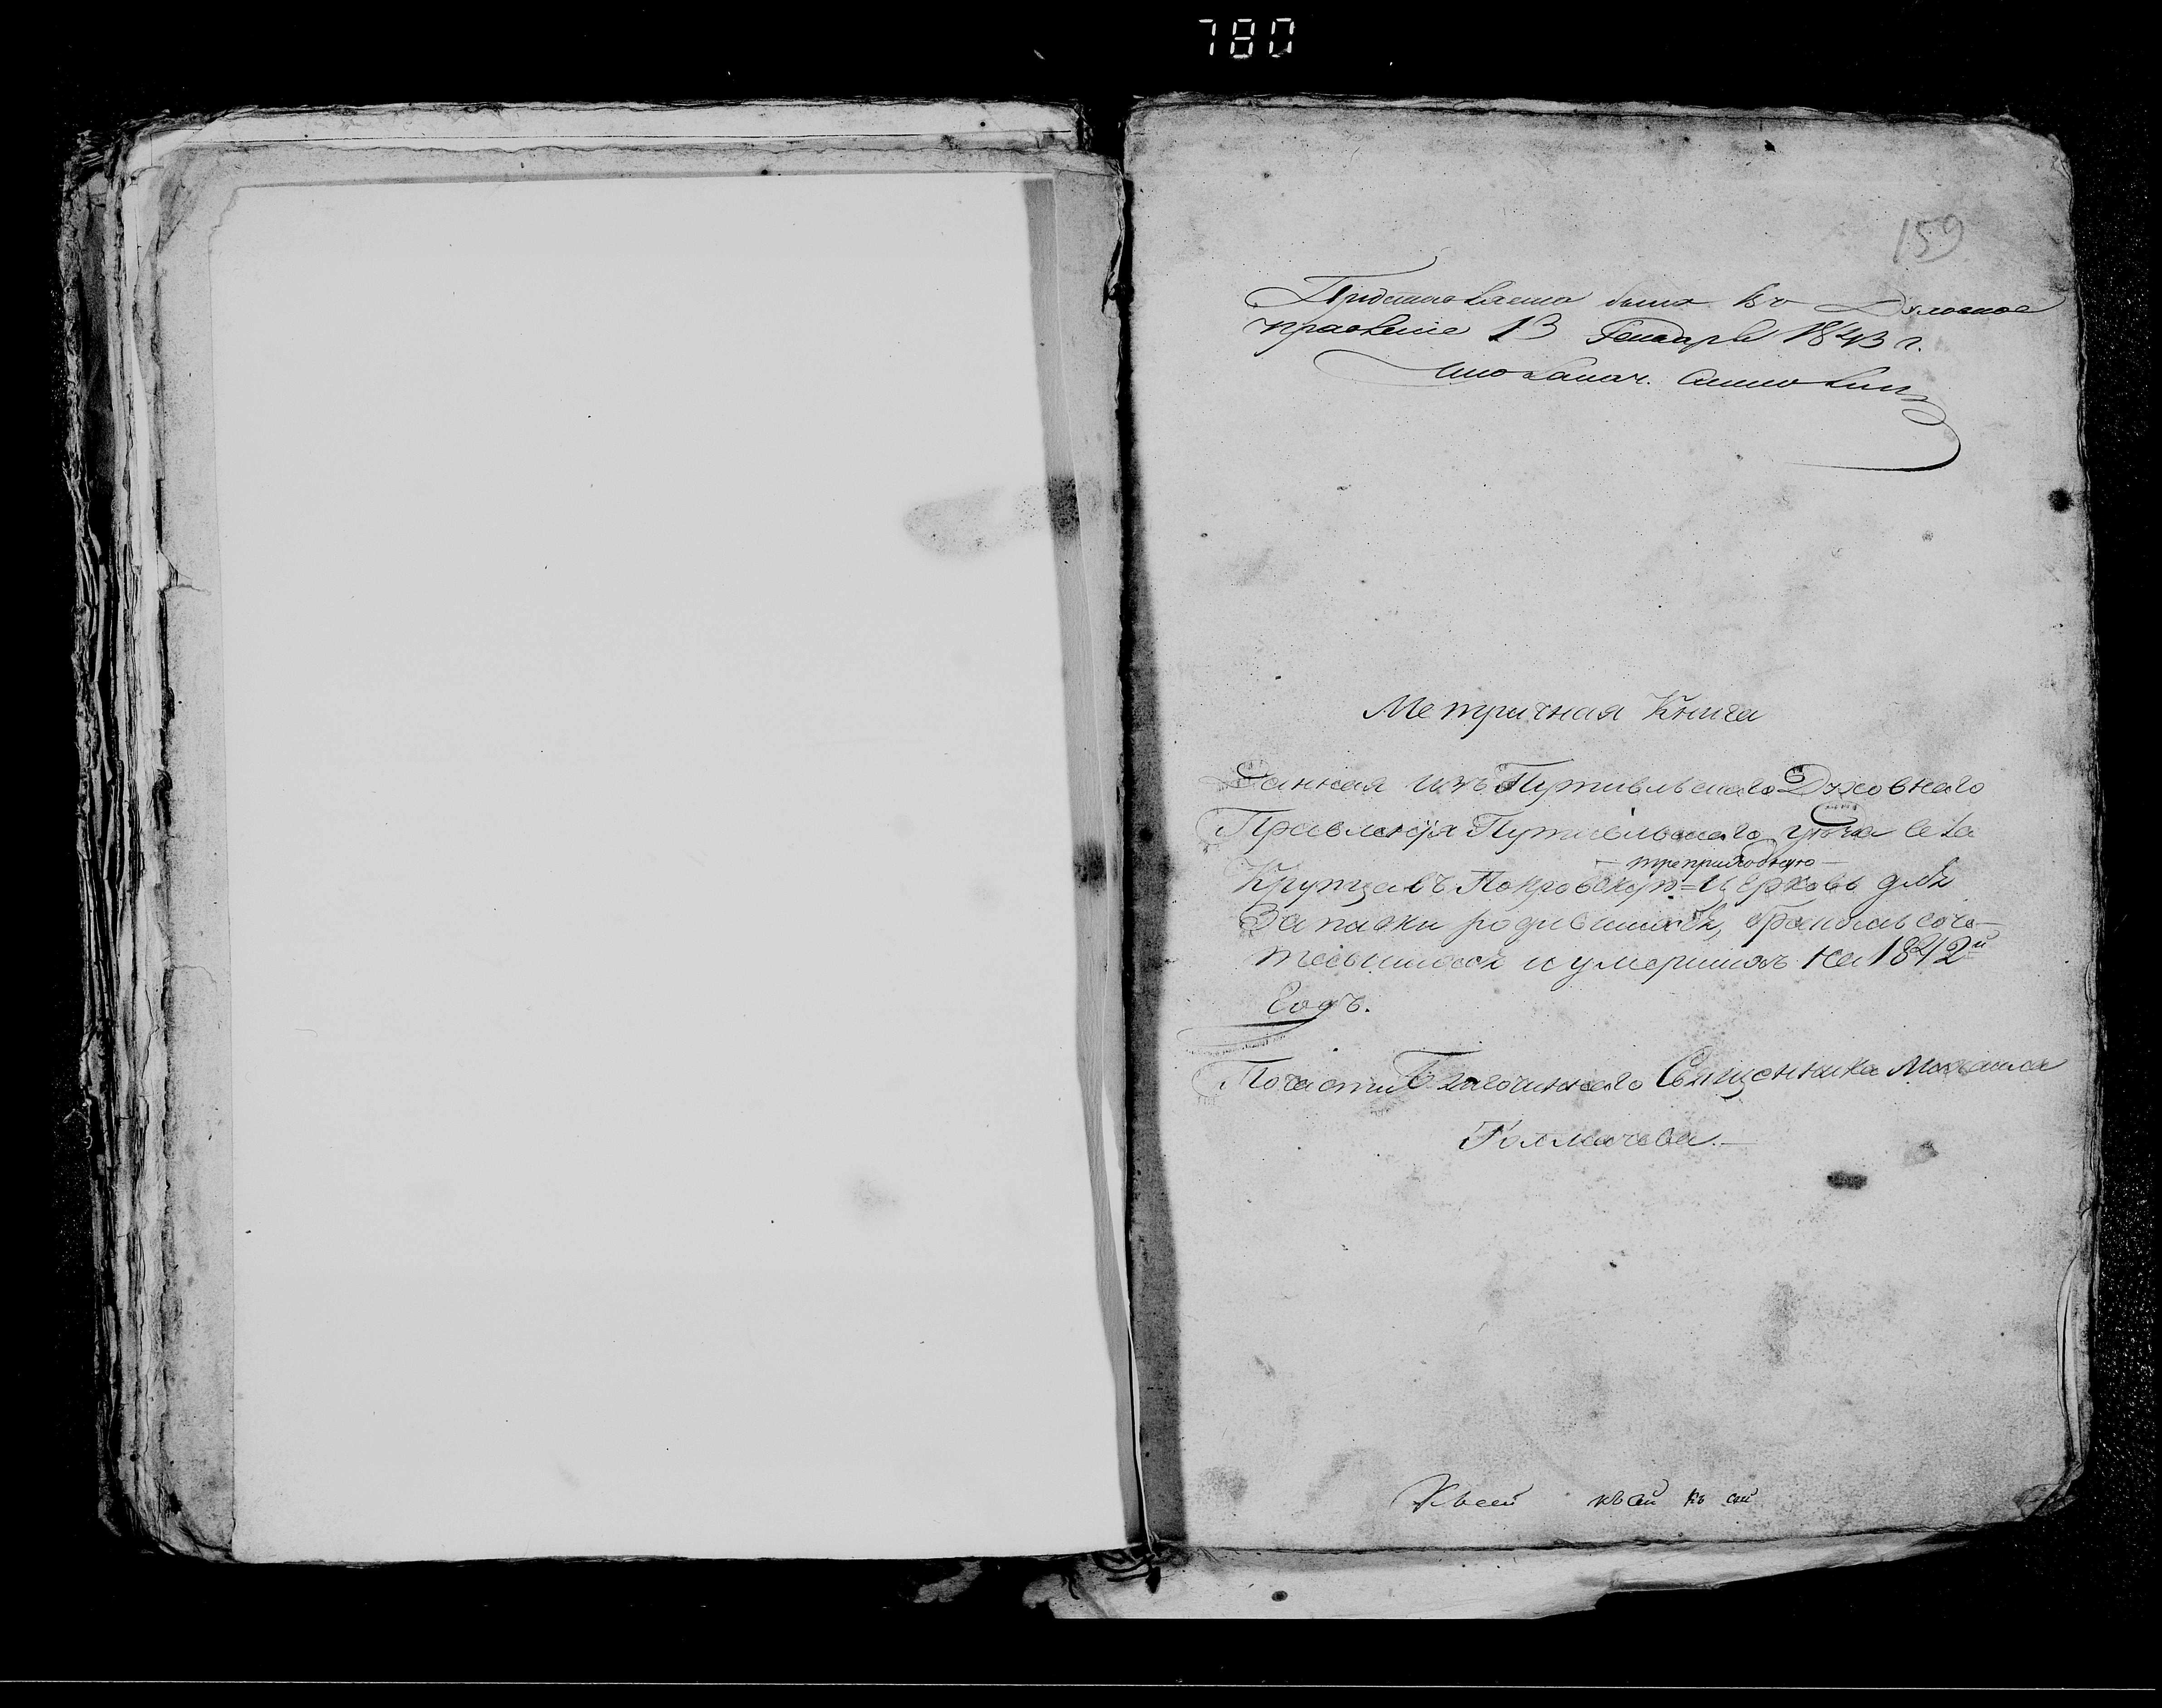 780
159
Представлена была въ Духовное
правление 13 Генваря 1843 г.
Метричная Книга
Данная изъ Путивльскаго Духовнаго
Правленія Путивльскаго уѣзда села
— трепрпиходную —
Крупца въ Покровскую = Церковь для
Записки родившихся, бракомъ соче-
тавшихся и умершихъ на 1842й
Годъ.
По части Благочиннаго Священника Михаила
Толмачева.—
Къ сей къ сей къ сей